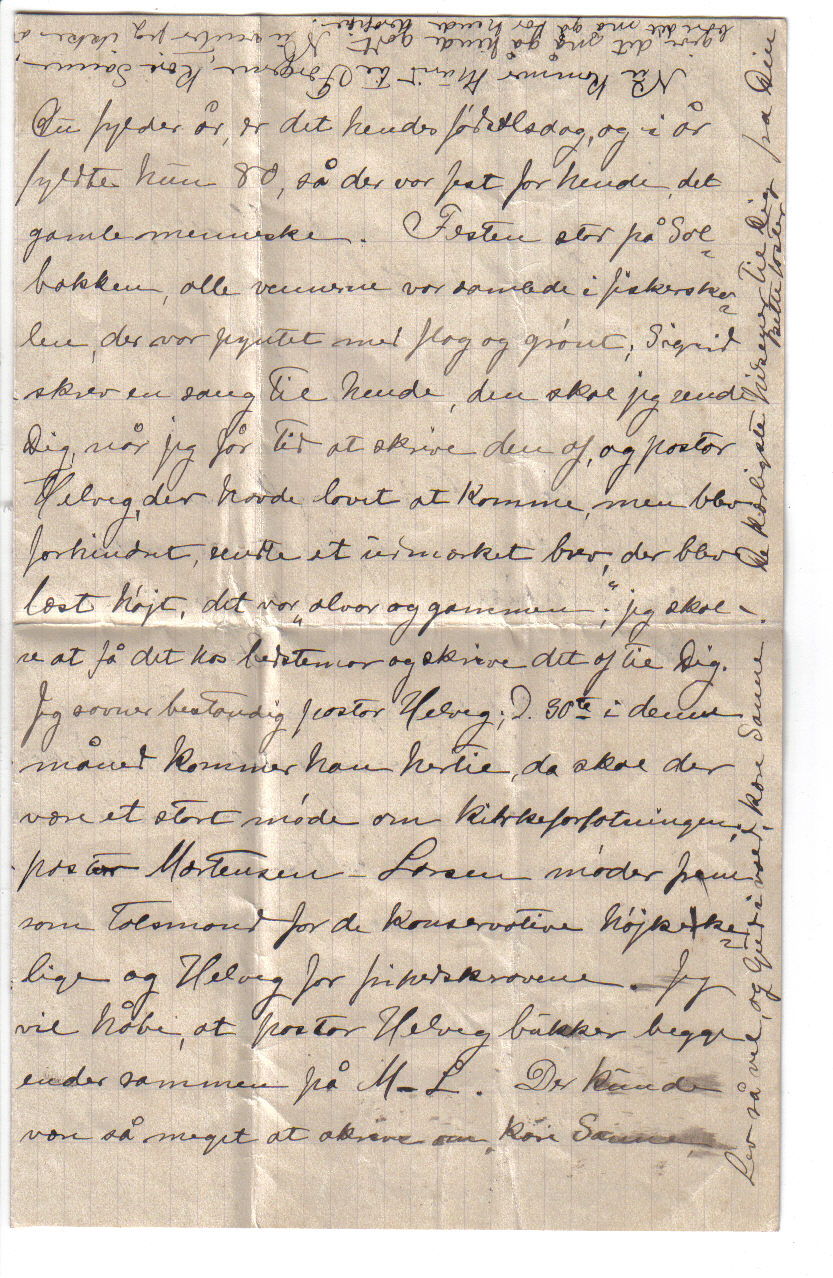 Du fylder år, er det hendes fødselsdag, og i år
fyldte hun 80, så der var fest for hende, det
gamle menneske. Festen stod på Sol=
bakken, alle vennerne var samlede i fiskersko=
len, der var pyntet med flag og grønt; Sigrid
skrev en sang til hende, den skal jeg sende
Dig, når jeg får tid at skrive den af, og pastor
Helveg, der havde lovet at komme, men blev
forhindret, sendte et udmærket brev, der blev
læst højt, det var „alvor og gammen“; jeg skal
se at få det hos bedstemor og skrive det af til Dig.
Jeg savner bestandig pastor Helveg; D. 30te i denne
måned kommer han hertil, da skal der
være et stort møde om kirkeforfatningen;
pastor Mortensen-Larsen møder frem
som talsmand for de konservative højkirke=
lige og Helveg for frihedskravene. Jeg
vil håbe, at pastor Helveg bukker begge
ender sammen på M-L. Der kunde
være så meget at skrive om, kære Sanne,
Nu kommer til Færgerne, kære Sanne,
det må gå hende godt. Nu venter jeg ikke
det må gå for hende
Lev så vel, og Gud i vold, kære Sanne! De kærligste hilsener til Dig fra Din